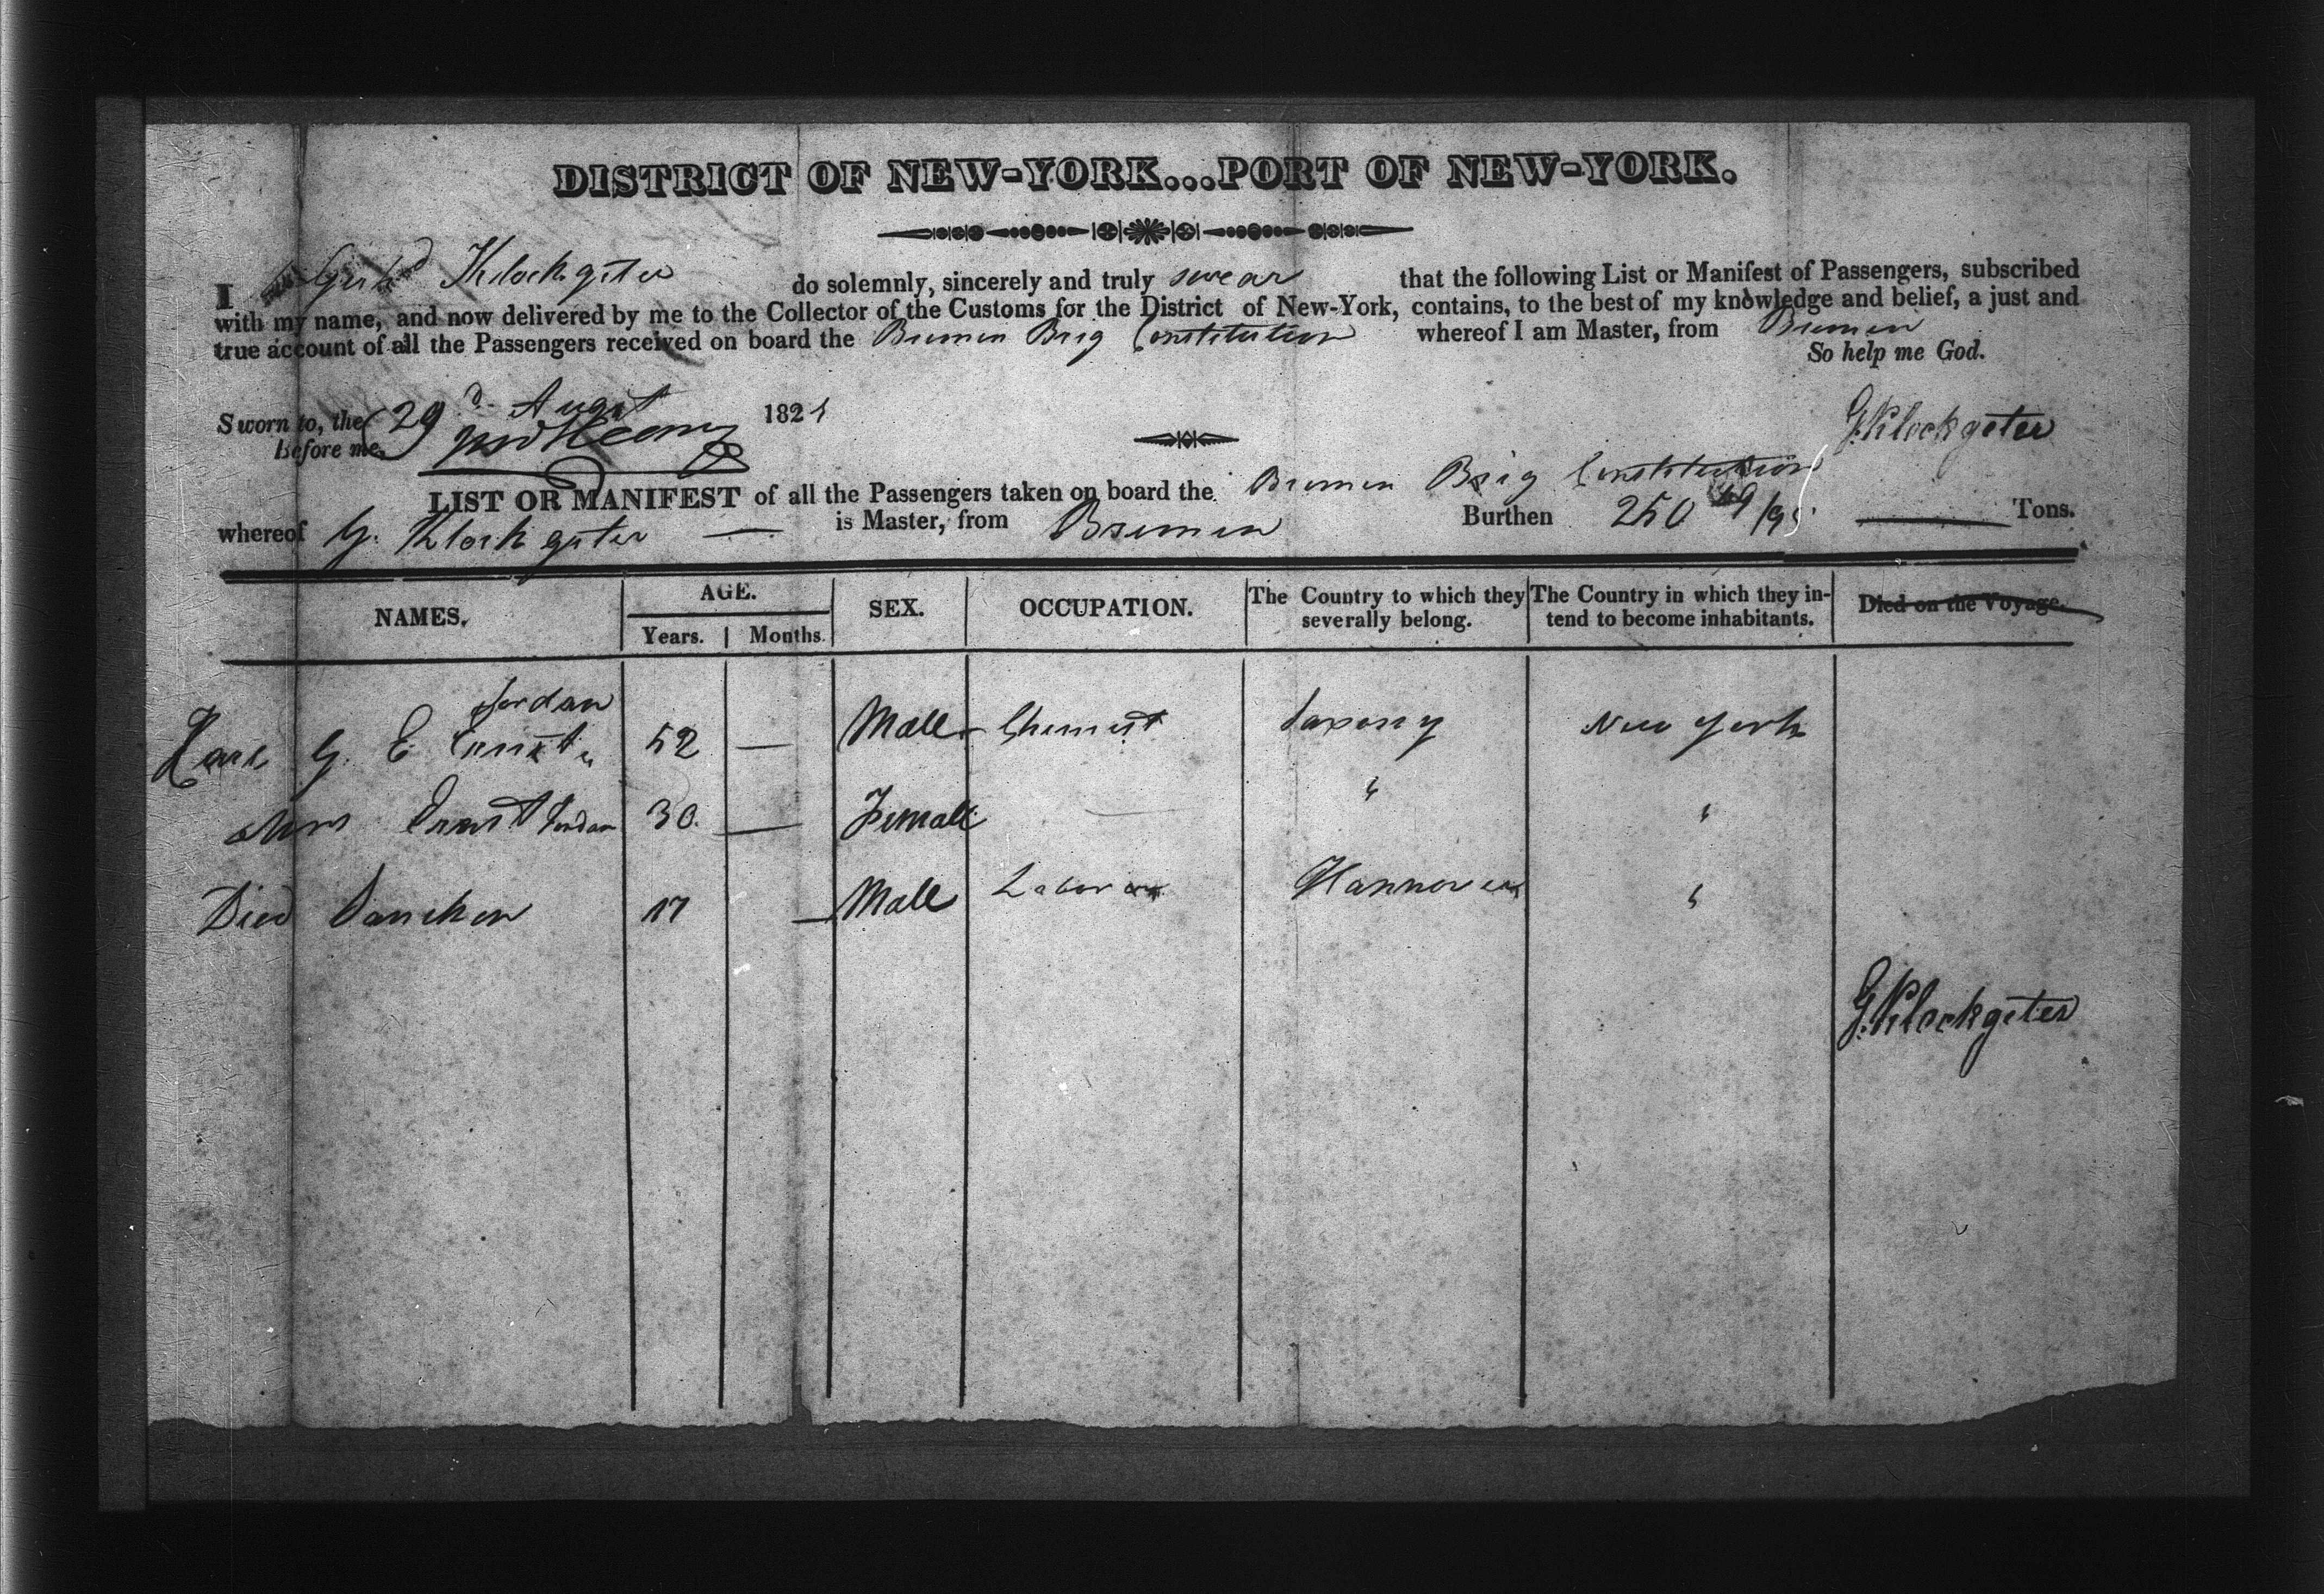 DISTRICT OF NEW-YORK...PORT OF NEW-YORK.
I Klockgeter do solemnly, sincerely and truly swear that the following List or Manifest of Passengers, subscribed
with my name, and now delivered by me to the Collector of the Customs for the District of New-York, contains, to the best of my knowledge and belief, a just and
true account of all the Passengers received on board the Bremen Brig Constitution whereof I am Master, from Bremen
So help me God.
Sworn to, the 29 Augst 182
before me,
G. Klockgeter
LIST OR MANIFEST of all the Passengers taken on board the Bremen Brig Constitution
whereof G. Klockgeter is Master, from Bremen Burthen 250 /95 Tons.
NAMES. AGE. SEX. OCCUPATION. The Country to which they severally belong. The Country in which they intend to become inhabitants. Died on the Voyage.
Years. Months.
Jordan
Karl G. E. 52 — Male Chemist Saxony New York
Mrs Ernst Jordan 30. — Female " "
Died 17 — Male Labor Hannover "
G. Klockgeter